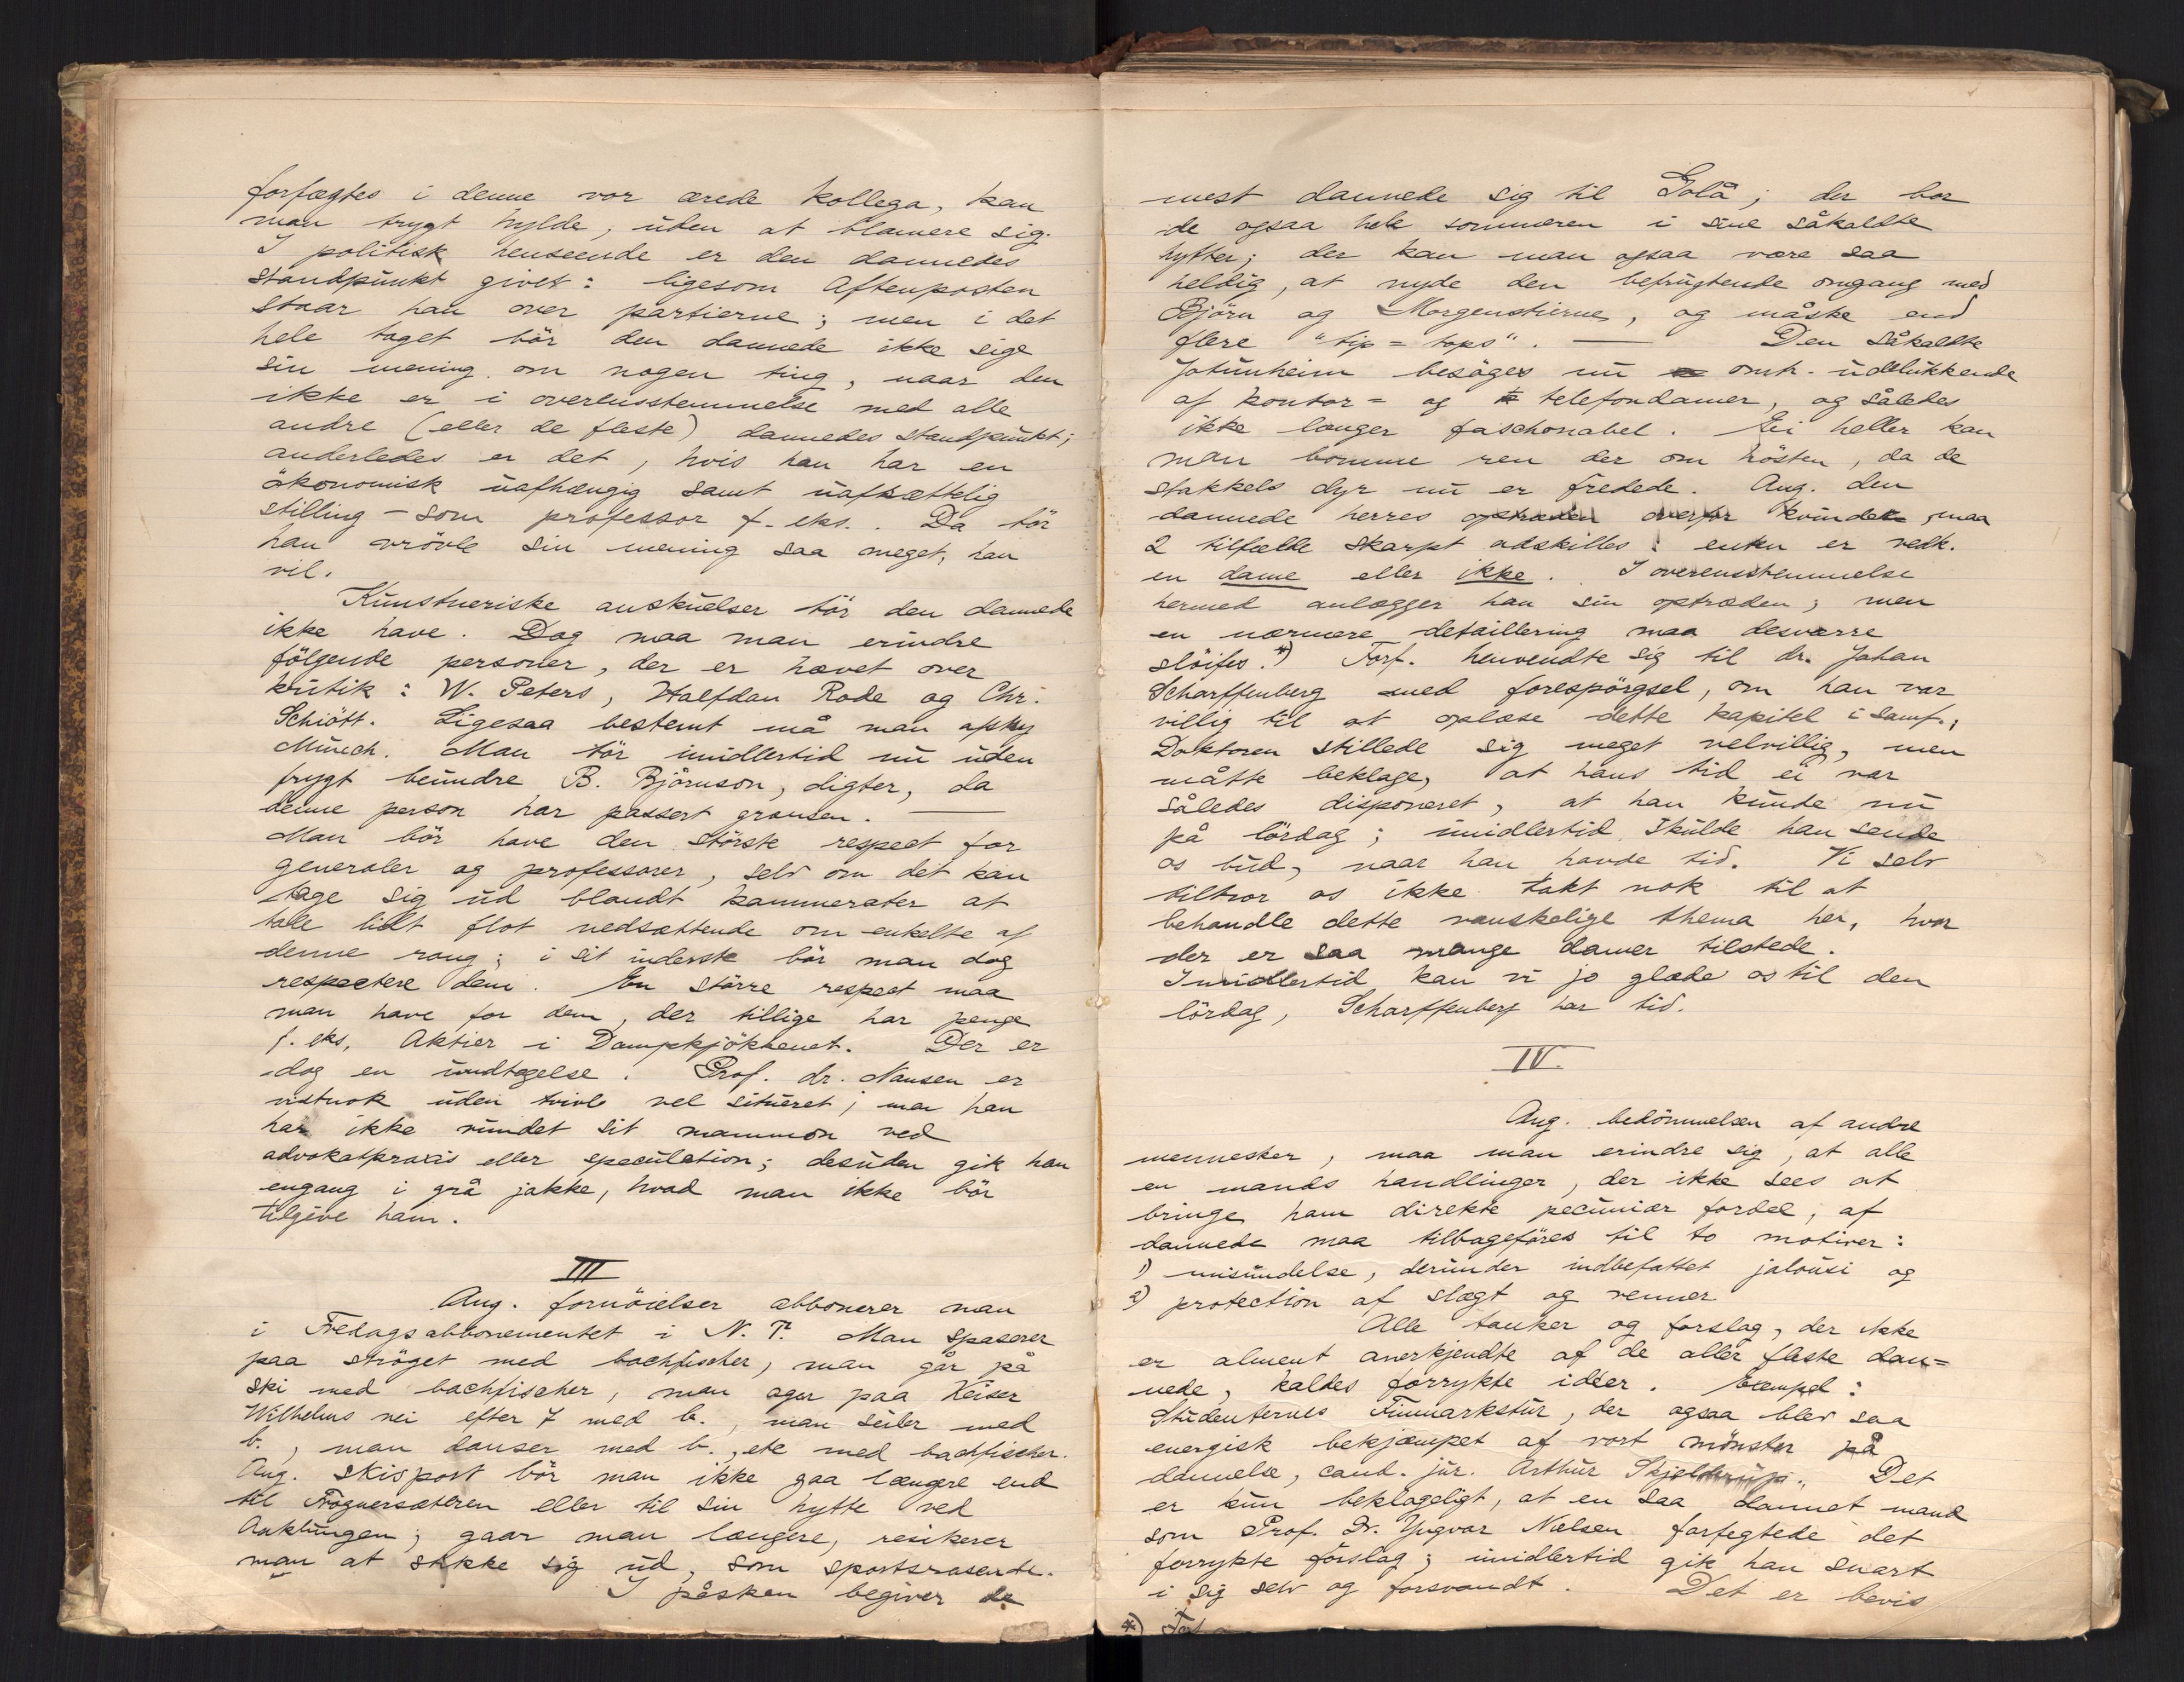 forfægtes i denne vor ærede kollega, kan
man trygt hylde, uden at blamere sig.
I politisk henseende er den dannedes
standpunkt givet: ligesom Aftenposten
staar han over partierne; men i det
hele taget bör den dannede ikke sige
sin mening om nogen ting, naar den
ikke er i overensstemmelse med alle
andre (eller de fleste) dannedes standpunkt;
anderledes er det, hvis han har en
ökonomisk uafhængig samt uafsættelig
stilling – som professor f. eks.. Da tör
han vrövle sin mening saa meget, han
vil.
Kunstneriske anskuelser tör den dannede
ikke have. Dog maa man erindre
fölgende personer, der er hævet over
kritik: W. Peters, Halfdan Rode og Chr.
Schiött. Ligesaa bestemt må man afsky
Munch. Man tör imidlertid nu uden
frygt beundre B. Björnson, digter, da
denne person har passert grænsen. —
Man bör have den störste respect for
generaler og professorer, selv om det kan
tage sig ud blandt kammerater at
tale lidt flot nedsættende om enkelte af
denne rang; i sit inderste bör man dog
respectere dem. En större respect maa
man have for dem, der tillige har penge
f. eks. Aktier i Dampkjökkenet. Der er
dog en undtagelse. Prof. dr. Nansen er
vistnok uden tvivl vel situeret; men han
har ikke vundet sit mammon ved
advokatpraxis eller speculation; desuden gik han
engang i grå jakke, hvad man ikke bör
tilgive ham.
III
Ang. fornöielser abbonerer man
i Fredagsabbonementet i N. T. Man spaserer
paa ströget med bachfischer, man går på
ski med bachfischer, man ager paa Keiser
Wilhelms vei efter 7 med b., man seiler med
b., man danser med b., etc med bachfischer.
Ang. skisport bör man ikke gaa længere end
til Frognersæteren eller til sin hytte ved
Anktjungen; gaar man længere, resikerer
man at stikke sig ud, som sportsrasende.
I påsken begiver de
mest dannede sig til Golå; der bor
de ogsaa hele sommeren i sine såkaldte
hytter; der kan man ogsaa være saa
heldig, at nyde den befrugtende omgang med
Björn og Morgenstierne, og måske end
flere "tip=tops". — Den såkaldte
Jotunheim besöges nu omtr. udelukkende
af kontor= og telefondamer, og således
ikke længer faschonabel. Ei heller kan
man bomme ren der om hösten, da de
stakkels dyr nu er fredede. Ang. den
dannede herres optræden overfor kvinder, maa
2 tilfælde skarpt adskilles: enten er vedk.
en dame eller ikke. I overensstemmelse
hermed anlægger han sin optræden; men
en nærmere detaillering maa desværre
slöifes.*) Forf. henvendte sig til dr. Johan
Scharffenberg med forespörgsel, om han var
villig til at oplæse dette kapitel i samf.,
Doktoren stillede sig meget velvillig, men
måtte beklage, at hans tid ei var
således disponeret, at han kunde nu
på lördag; imidlertid skulde han sende
os bud, naar han havde tid. Vi selv
tiltror os ikke takt nok til at
behandle dette vanskelige thema her, hvor
der er saa mange damer tilstede.
Imidlertid kan vi jo glæde os til den
lördag, Scharffenberg har tid.
IV.
Ang. bedömmelsen af andre
mennesker, maa man erindre sig, at alle
en mands handlinger, der ikke sees at
bringe ham direkte pecuniær fordel, af
dannede maa tilbageföres til to motiver:
1) misundelse, derunder indbefattet jalousi og
2) protection af slægt og venner
Alle tanker og forslag, der ikke
er alment anerkjendte af de aller fleste dan=
nede, kaldes forrykte idéer. Exempel:
Studenternes Finmarkstur, der ogsaa blev saa
energisk bekjæmpet af vort mönster på
dannelse, cand. jur. Arthur Skjelderup. Det
er kun beklageligt, at en saa dannet mand
som Prof. Dr. Yngvar Nielsen forfegtede det
forrykte forslag; imidlertid gik han snart
i sig selv og forsvandt. Det er bevis
*)